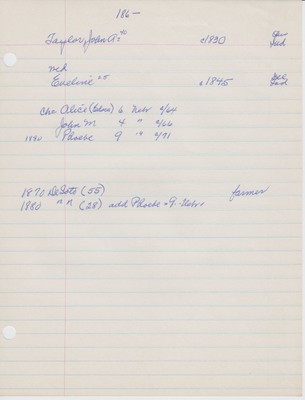 186-
Taylor, John A. 40 c1830
md
Eveline 25 c1845 Ind
Chn Alice (Edna) 6 Nebr c/64
John M. 4 " c/66
1880 Phoebe 9 " c/71
1870 DeSoto (55) farmer
1880 " " (28) add Phoebe - 9 - Nebr